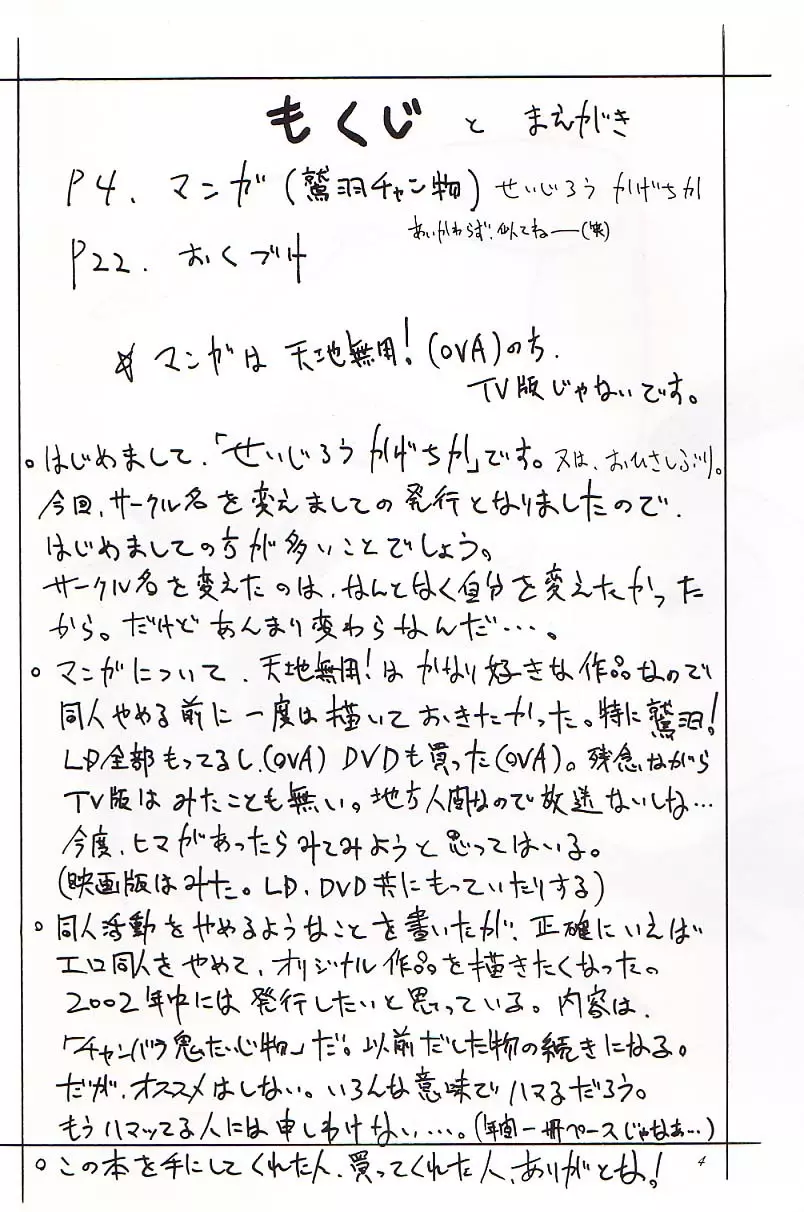 もくじ と まえがき
P4. マンガ(鷲羽チャン物) せいじろう かげちか
あいかわらず、似てねー(笑)
P22. おくづけ
☆ マンガは 天地無用!(OVA)のち.
TV版じゃないです。
。はじめまして.「せいじろう かげちか」です。又は、おひさしぶり。
今回、サークル名を変えましての発行となりましたので、
はじめましての方が多いことでしょう。
サークル名を変えたのは、なんとなく自分を変えたかった
から。だけど あんまり変わらなんだ…。
。マンガについて、天地無用!は かなり好きな作品なので
同人やめる前に一度は描いておきたかった。特に鷲羽!
LD全部もってるし、(OVA) DVDも買った(OVA)。残念ながら
TV版はみたことも無い。地方人間なので放送ないしね…
今度、ヒマがあったらみてみようと思ってはいる。
(映画版はみた。LD、DVD共にもっていたりする)
。同人活動をやめるようなことを書いたが、正確にいえば
エロ同人をやめて、オリジナル作品を描きたくなったの。
2002年中には発行したいと思っている。内容は、
「チャンバラ鬼たいじ物」だ。以前だした物の続きになる。
だが、オススメはしない。いろんな意味でハマるだろう。
もうハマッてる人には申しわけない…。(年間一冊ペースじゃなぁ…)
。この本を手にしてくれた人、買ってくれた人、ありがとな!
4